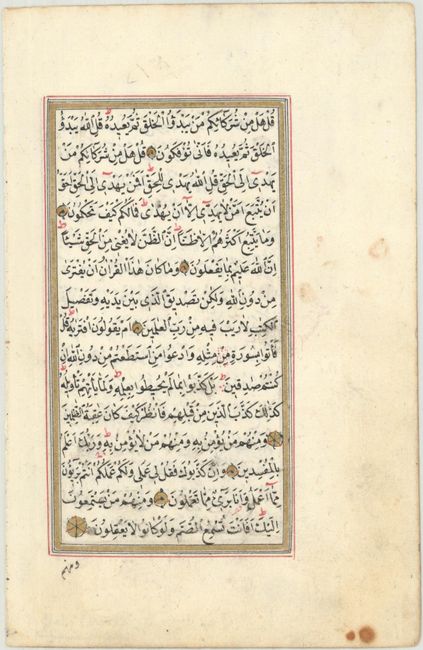 قُلْ هَلْ مِنْ شُرَكَائِكُمْ مَنْ يَبْدَؤُا الْخَلْقَ ثُمَّ يُعِيدُهُ قُلِ اللّٰهُ يَبْدَؤُا
الْخَلْقَ ثُمَّ يُعِيدُهُ فَاَنّٰى تُؤْفَكُونَ قُلْ هَلْ مِنْ شُرَكَائِكُمْ مَنْ
يَهْدِى اِلَى الْحَقِّ قُلِ اللّٰهُ يَهْدِى لِلْحَقِّ اَفَمَنْ يَهْدِى اِلَى الْحَقِّ اَحَقُّ
اَنْ يُتَّبَعَ اَمَّنْ لَا يَهِدِّى اِلَّا اَنْ يُهْدٰى فَمَا لَكُمْ كَيْفَ تَحْكُمُونَ
وَمَا يَتَّبِعُ اَكْثَرُهُمْ اِلَّا ظَنًّا اِنَّ الظَّنَّ لَا يُغْنِى مِنَ الْحَقِّ شَيْئًا
اِنَّ اللّٰهَ عَلِيمٌ بِمَا يَفْعَلُونَ وَمَا كَانَ هٰذَا الْقُرْاٰنُ اَنْ يُفْتَرٰى
مِنْ دُونِ اللّٰهِ وَلٰكِنْ تَصْدِيقَ الَّذِى بَيْنَ يَدَيْهِ وَتَفْصِيلَ
الْكِتٰبِ لَا رَيْبَ فِيهِ مِنْ رَبِّ الْعٰلَمِينَ اَمْ يَقُولُونَ افْتَرٰيهُ قُلْ
فَأْتُوا بِسُورَةٍ مِثْلِهِ وَادْعُوا مَنِ اسْتَطَعْتُمْ مِنْ دُونِ اللّٰهِ اِنْ
كُنْتُمْ صٰدِقِينَ بَلْ كَذَّبُوا بِمَا لَمْ يُحِيطُوا بِعِلْمِهِ وَلَمَّا يَأْتِهِمْ تَأْوِيلُهُ
كَذٰلِكَ كَذَّبَ الَّذِينَ مِنْ قَبْلِهِمْ فَانْظُرْ كَيْفَ كَانَ عٰقِبَةُ الظّٰلِمِينَ
وَمِنْهُمْ مَنْ يُؤْمِنُ بِهِ وَمِنْهُمْ مَنْ لَا يُؤْمِنُ بِهِ وَرَبُّكَ اَعْلَمُ
بِالْمُفْسِدِينَ وَاِنْ كَذَّبُوكَ فَقُلْ لِى عَمَلِى وَلَكُمْ عَمَلُكُمْ اَنْتُمْ بَرِيؤُنَ
مِمَّا اَعْمَلُ وَاَنَا بَرِىءٌ مِمَّا تَعْمَلُونَ وَمِنْهُمْ مَنْ يَسْتَمِعُونَ
اِلَيْكَ اَفَاَنْتَ تُسْمِعُ الصُّمَّ وَلَوْ كَانُوا لَا يَعْقِلُونَ
ومنهم